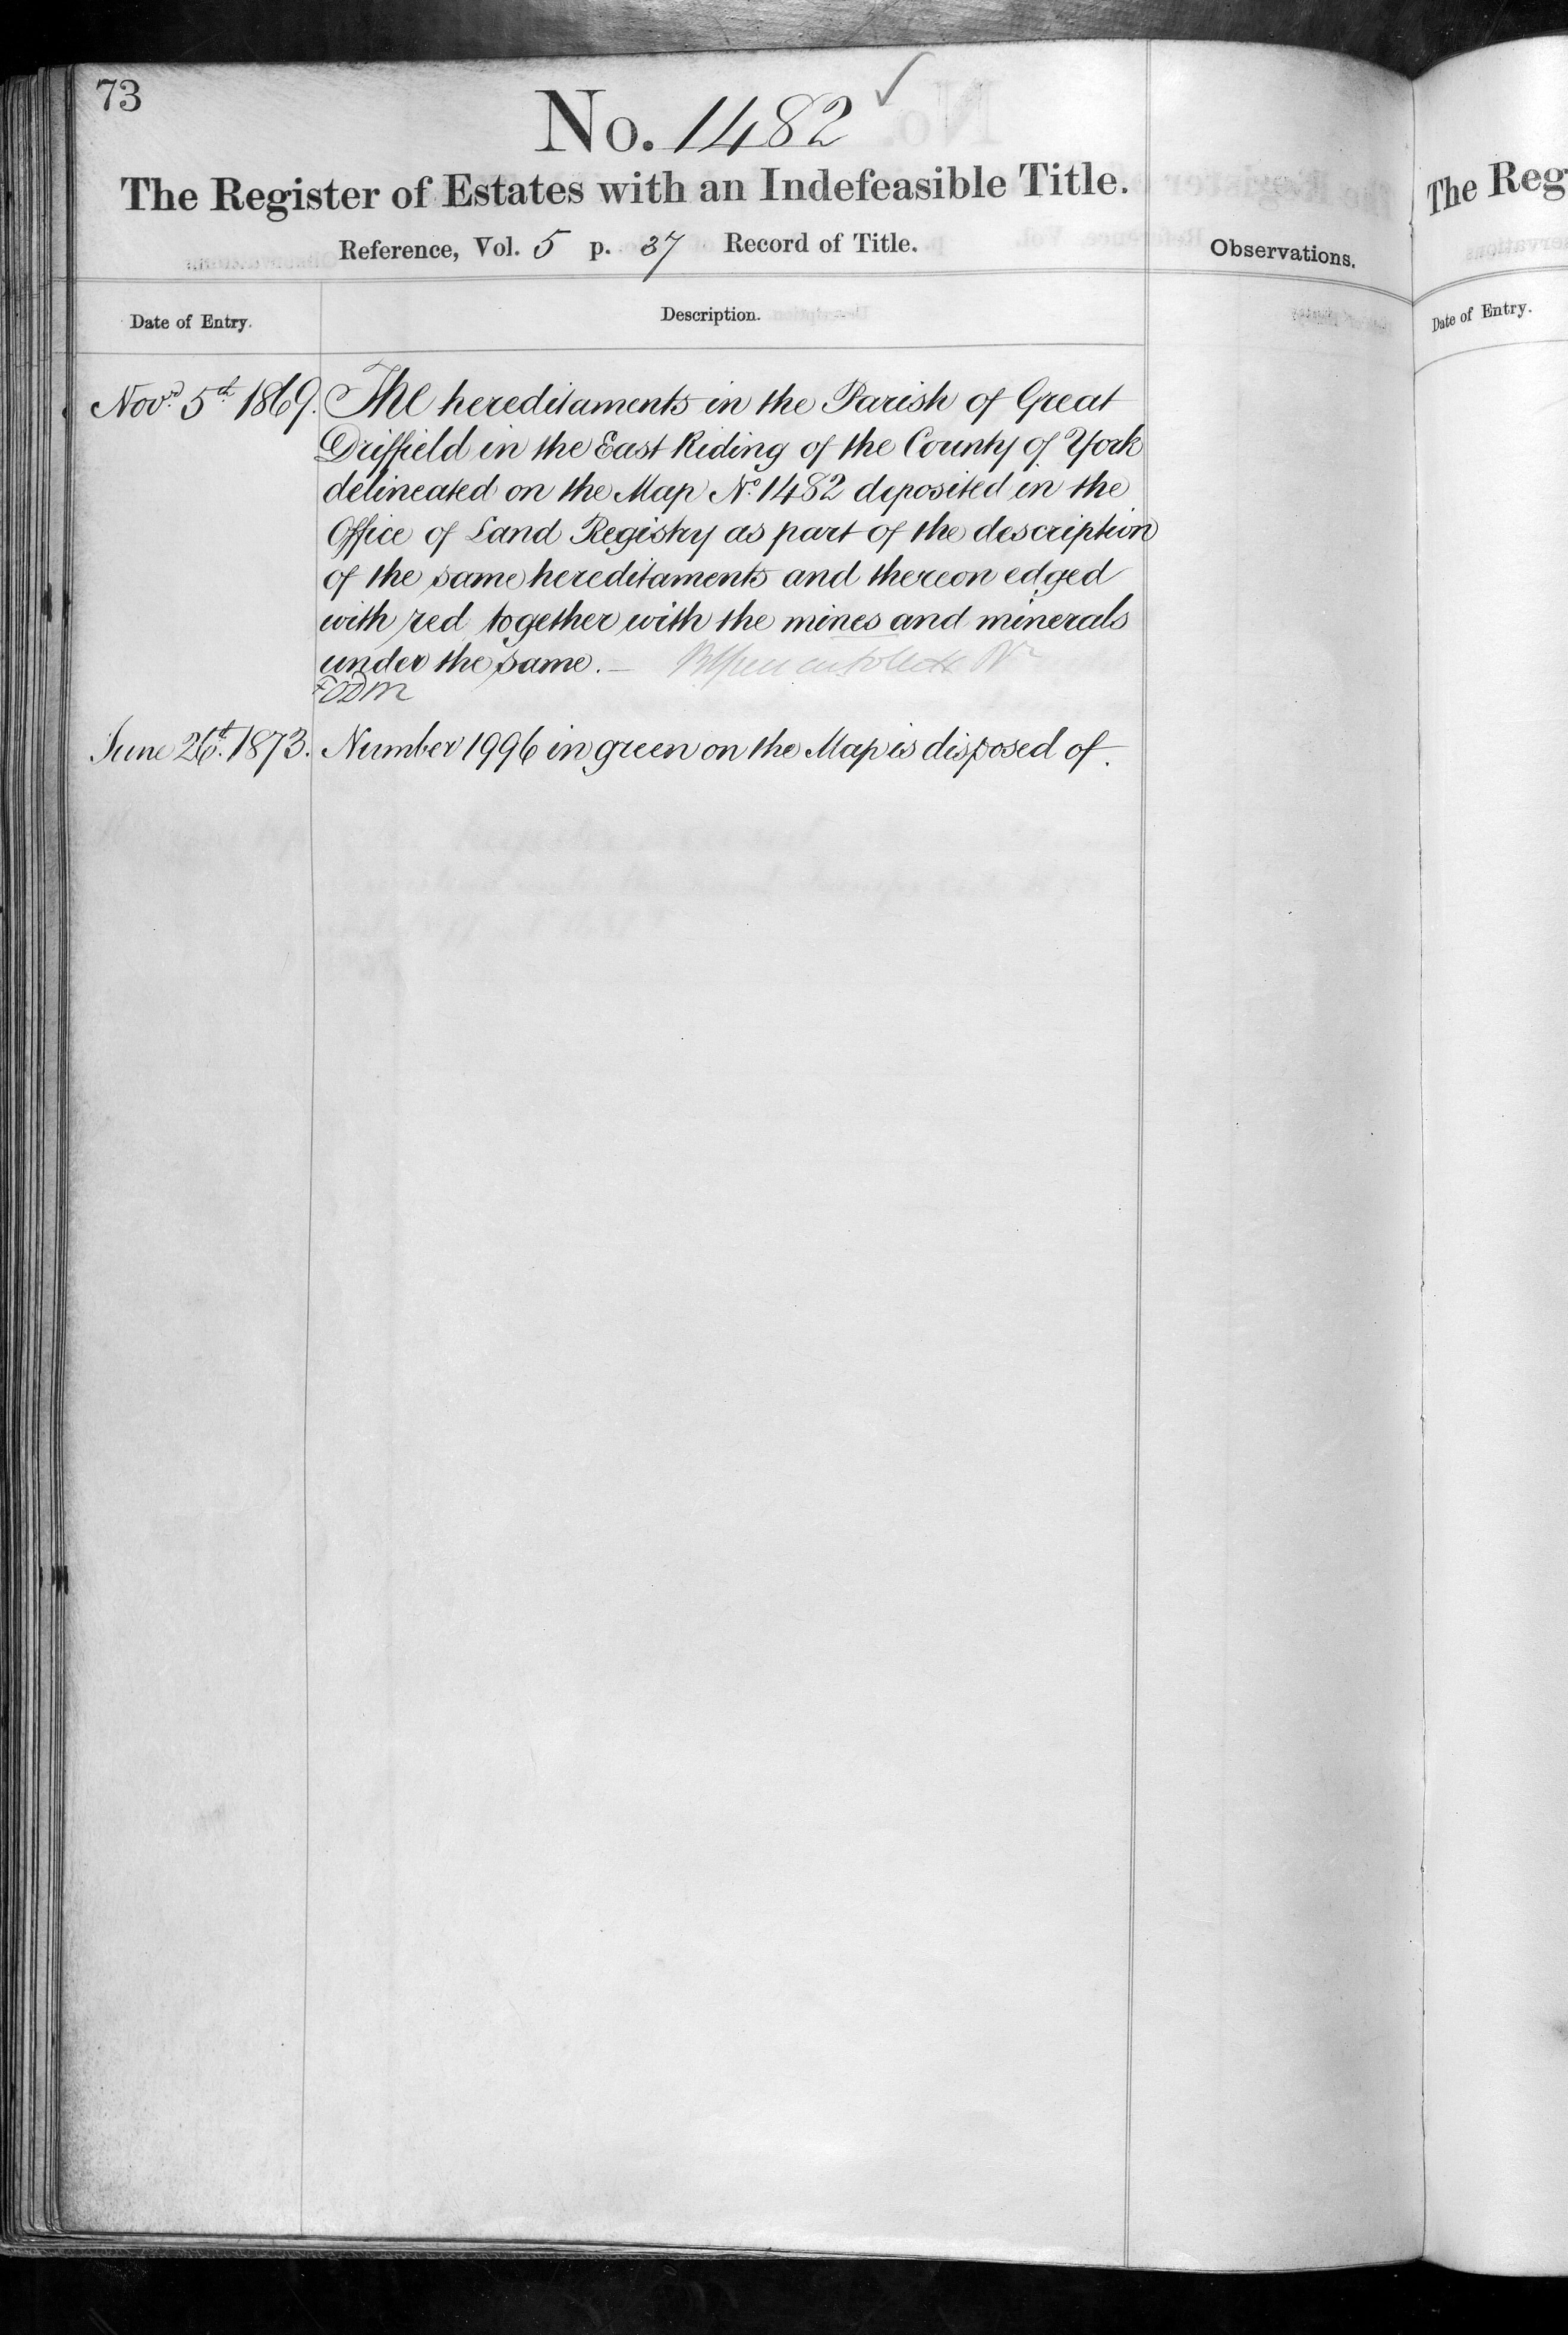 73
No. 1482 ✓
The Register of Estates with an Indefeasible Title.
Reference, Vol. 5 p. 37 Record of Title.
Observations.
Date of Entry.
Description.
Novr. 5th 1869. The hereditaments in the Parish of Great
Driffield in the East Riding of the County of York
delineated on the Map No. 1482 deposited in the
Office of Land Registry as part of the description
of the same hereditaments and thereon edged
with red together with the mines and minerals
under the same. —
June 26th. 1873. Number 1996 in green on the Map is disposed of.
The Reg
Date of Entry.